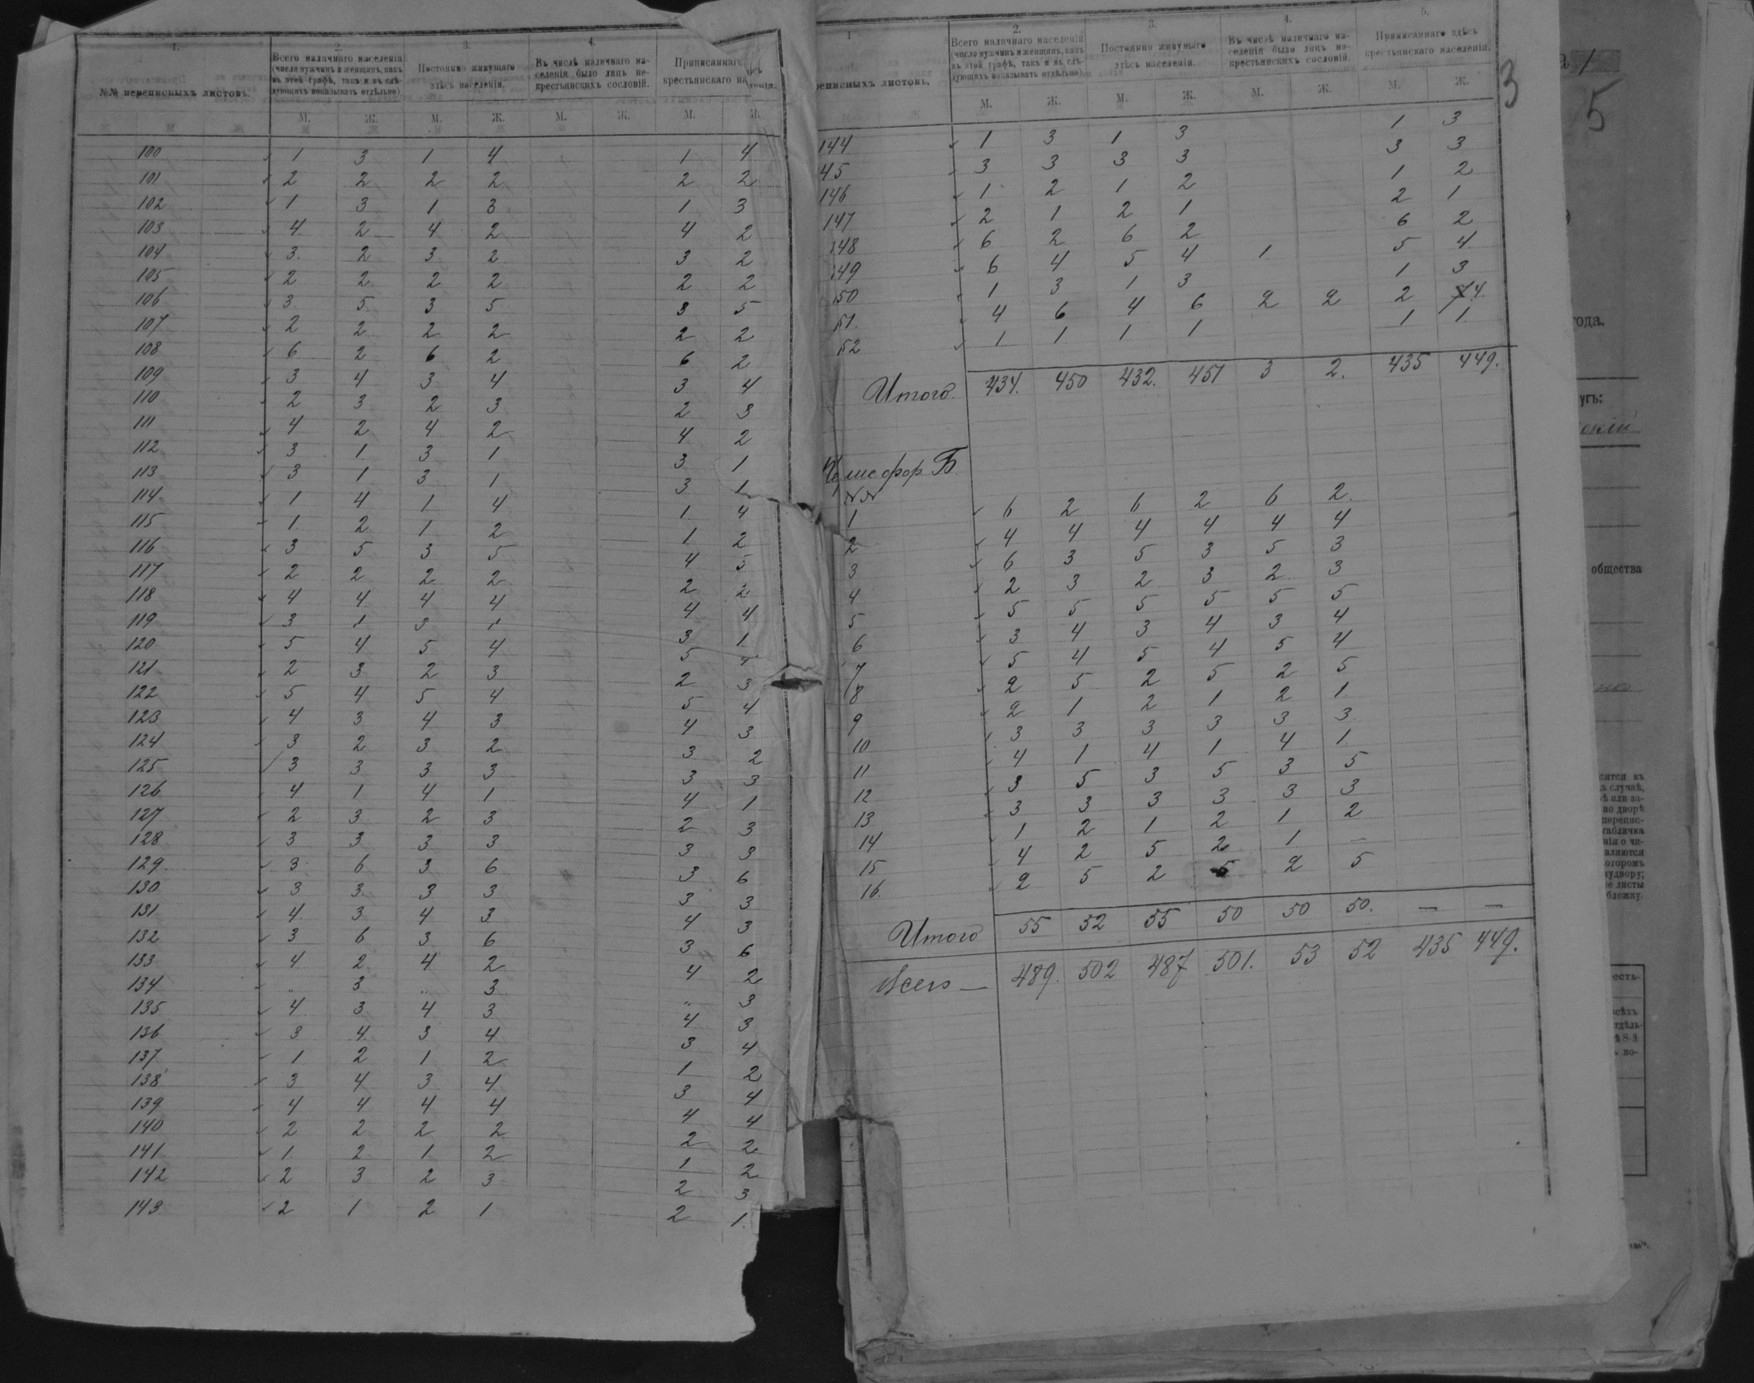 1. 2. 3. 4.
№№ переписныхъ листовъ. Всего наличнаго населенія (число мужчинъ и женщинъ, какъ въ этой графѣ, такъ и въ слѣдующихъ показывать отдѣльно) Постоянно живущаго здѣсь населенія. Въ числѣ наличнаго населенія было лицъ некрестьянскихъ сословій. Приписаннаго крестьянскаго
М. Ж. М. Ж. М. Ж. М. Ж.
100 1 3 1 4 1 4
101 2 2 2 2 2 2
102 1 3 1 3 1 3
103 4 2 4 2 4 2
104 3 2 3 2 3 2
105 2 2 2 2 2 2
106 3 5 3 5 3 5
107 2 2 2 2 2 2
108 6 2 6 2 6 2
109 3 4 3 4 3 4
110 2 3 2 3 2 3
111 4 2 4 2 4 2
112 3 1 3 1 3 1
113 3 1 3 1 3 1
114 1 4 1 4 1 4
115 1 2 1 2 1 2
116 3 5 3 5 4 5
117 2 2 2 2 2 2
118 4 4 4 4 4 4
119 3 1 3 1 3 1
120 5 4 5 4 5 4
121 2 3 2 3 2 3
122 5 4 5 4 5 4
123 4 3 4 3 4 3
124 3 2 3 2 3 2
125 3 3 3 3 3 3
126 4 1 4 1 4 1
127 2 3 2 3 2 3
128 3 3 3 3 3 3
129 3 6 3 6 3 6
130 3 3 3 3 3 3
131 4 3 4 3 4 3
132 3 6 3 6 3 6
133 4 2 4 2 4 2
134 .. 3 .. 3 .. 3
135 4 3 4 3 4 3
136 3 4 3 4 3 4
137 1 2 1 2 1 2
138 3 4 3 4 3 4
139 4 4 4 4 4 4
140 2 2 2 2 2 2
141 1 2 1 2 1 2
142 2 3 2 3 2 3
143 2 1 2 1 2 1
1 2. 3. 4. 5.
реписныхъ листовъ. Всего наличнаго населенія (число мужчинъ и женщинъ, какъ въ этой графѣ, такъ и въ слѣдующихъ показывать отдѣльно) Постоянно живущаго здѣсь населенія. Въ числѣ наличнаго населенія было лицъ некрестьянскихъ сословій. Приписаннаго здѣсь крестьянскаго населенія.
М. Ж. М. Ж. М. Ж. М. Ж.
3
144 1 3 1 3 1 3
45 3 3 3 3 3 3
146 1 2 1 2 1 2
147 2 1 2 1 2 1
148 6 2 6 2 6 2
149 6 4 5 4 1 5 4
150 1 3 1 3 1 3
151 4 6 4 6 2 2 2 4
152 1 1 1 1 1 1
Итого. 434. 450 432. 451 3 2. 435 449.
фор. Б.
№№
1 6 2 6 2 6 2
2 4 4 4 4 4 4
3 6 3 5 3 5 3
4 2 3 2 3 2 3
5 5 5 5 5 5 5
6 3 4 3 4 3 4
7 5 4 5 4 5 4
8 2 5 2 5 2 5
9 2 1 2 1 2 1
10 3 3 3 3 3 3
11 4 1 4 1 4 1
12 3 5 3 5 3 5
13 3 3 3 3 3 3
14 1 2 1 2 1 2
15 4 2 5 2 1 —
16. 2 5 2 5 2 5
Итого 55 52 55 50 50 50. — —
Всего — 489. 502 487 501. 53 52 435 449.
5
года.
угъ:
общества